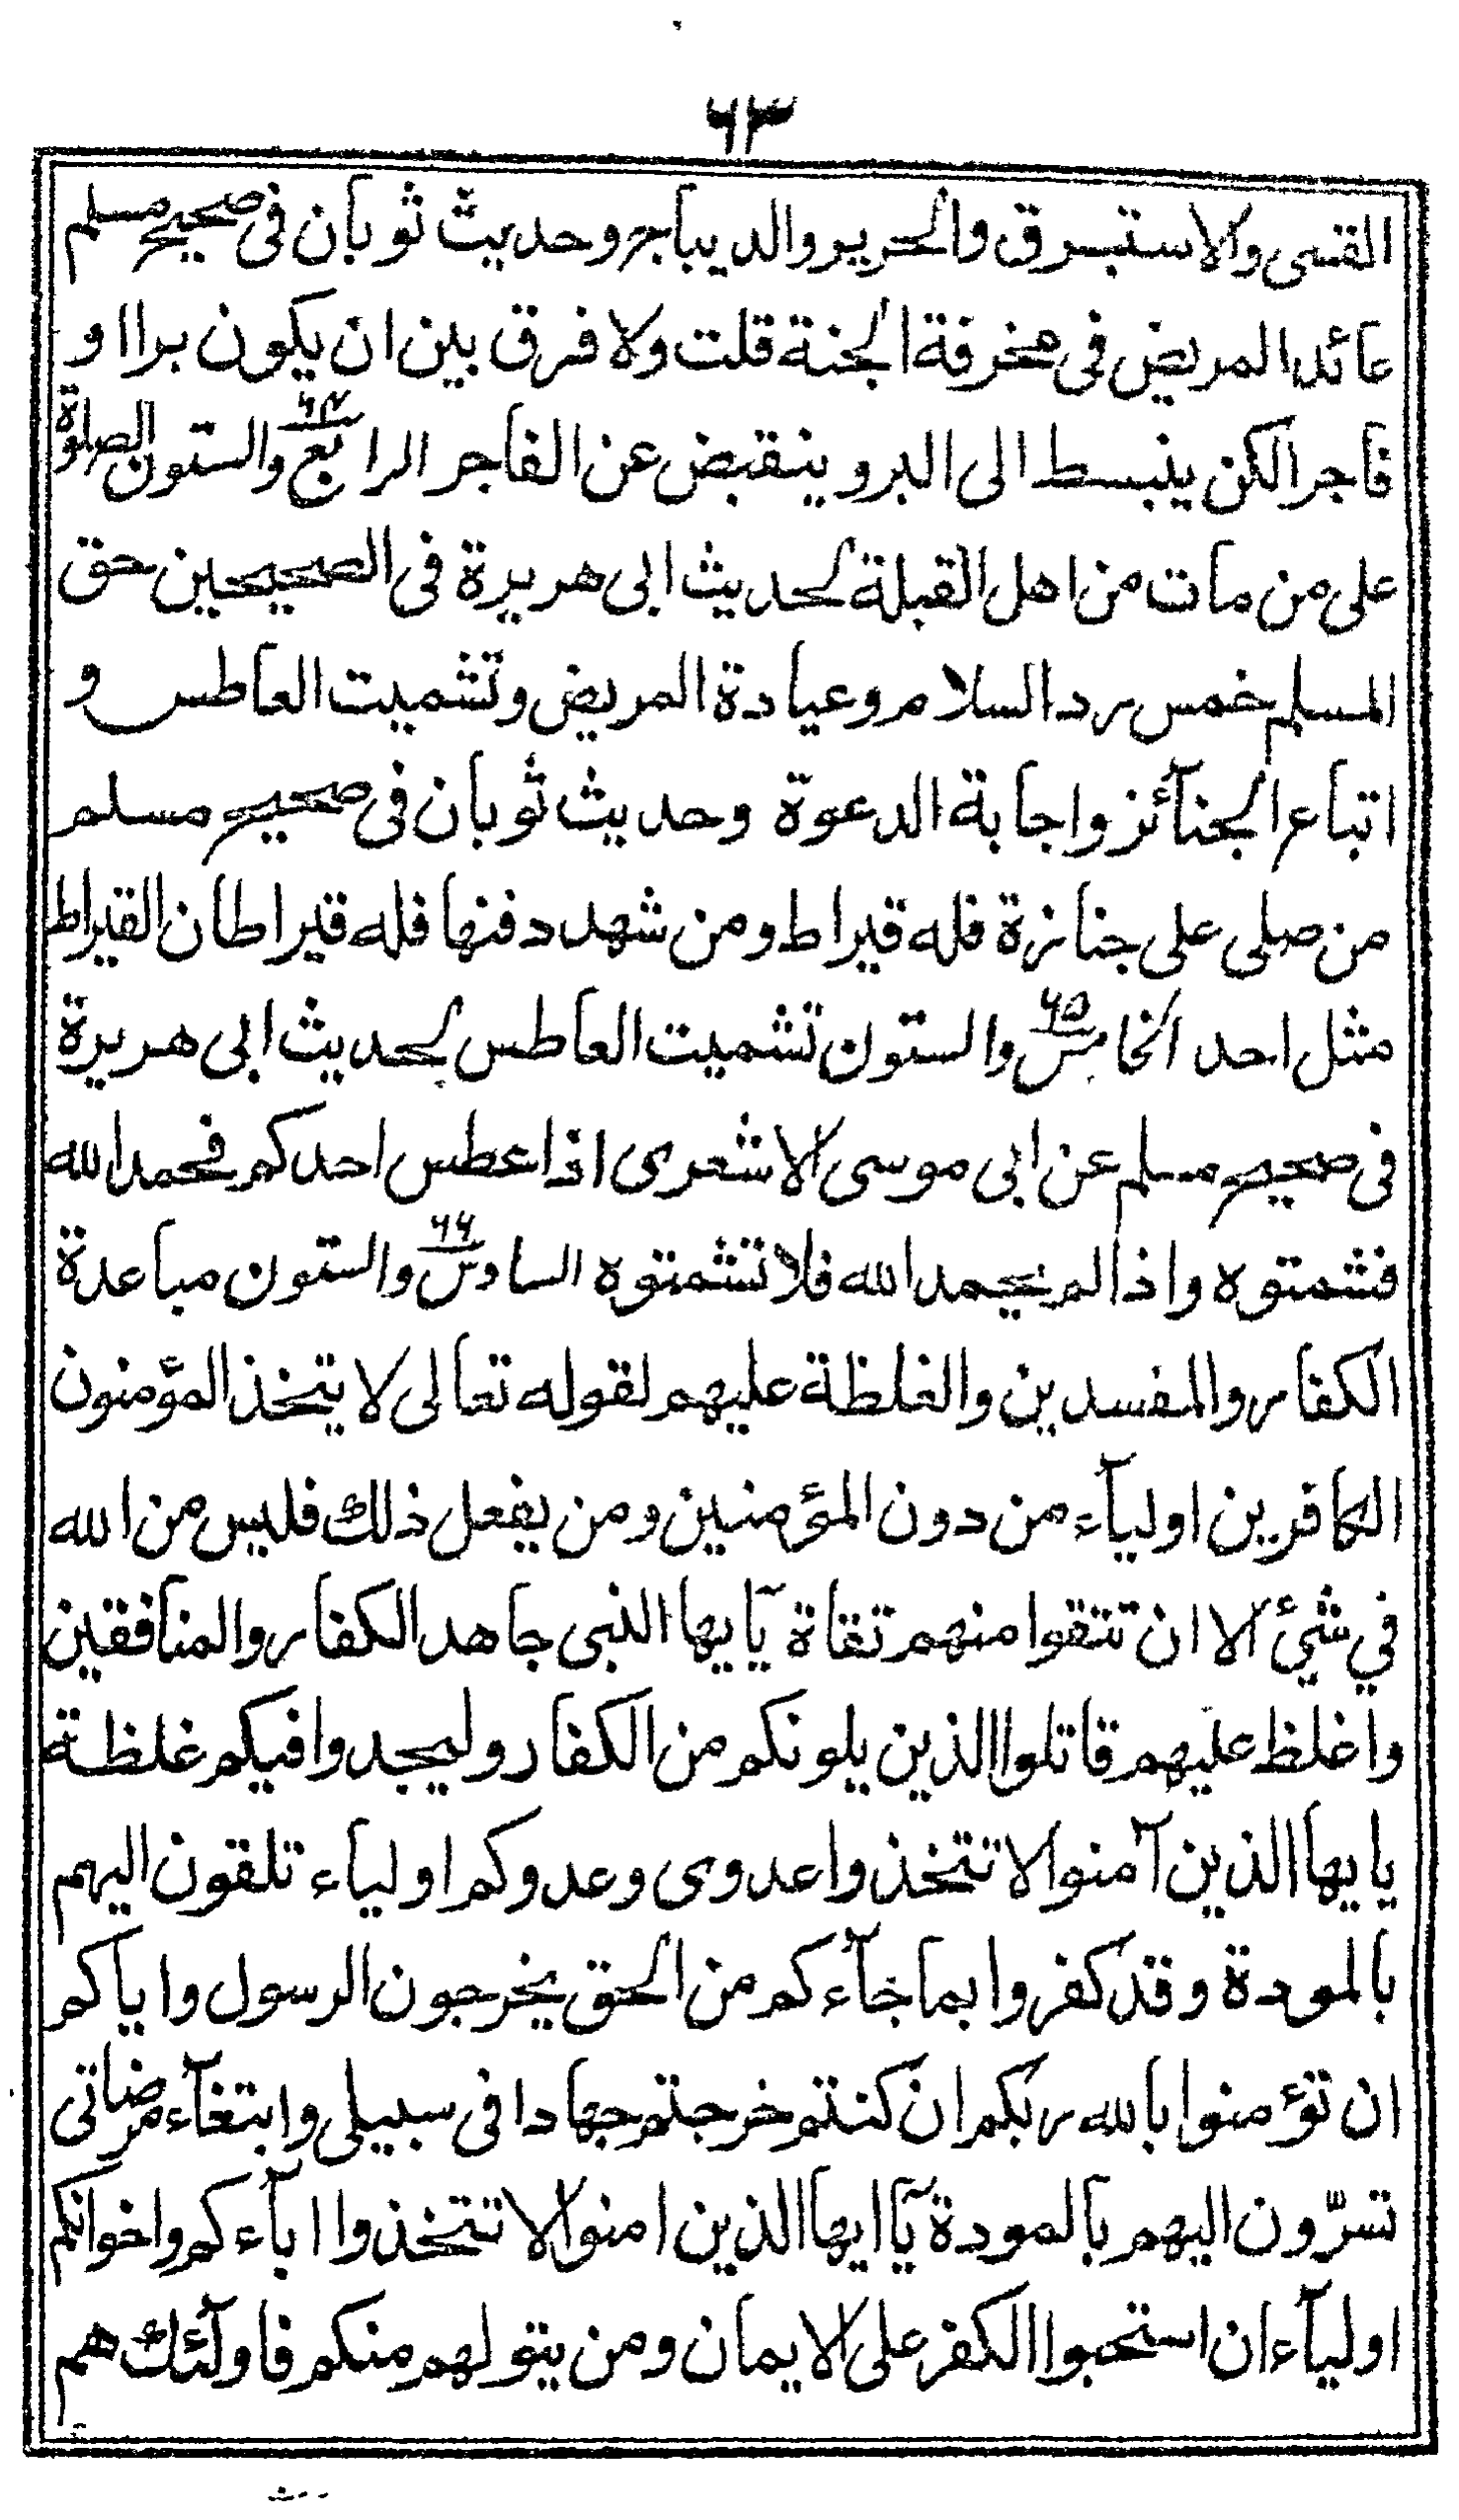 ٦٣
القسى والاستبرق والحرير والديباج وحديث ثوبان فى صحيح مسلم
عائد المريض فى مخرفة الجنة قلت ولا فرق بين ان يكون برا او
فاجرا لكن ينبسط الى البر وينقبض عن الفاجر الرابع ٦٤ والستون الصلوة
على من مات من اهل القبلة لحديث ابى هريرة فى الصحيحين حق
المسلم خمس رد السلام وعيادة المريض وتشميت العاطس و
اتباع الجنآئز واجابة الدعوة وحديث ثوبان فى صحيح مسلم
من صلى على جنازة فله قيراط ومن شهد دفنها فله قيراطان القيراط
مثل احد الخامس ٦٥ والستون تشميت العاطس لحديث ابى هريرة
فى صحيح مسلم عن ابى موسى الاشعرى اذا عطس احدكم فحمد الله
فشمتوه واذا لم يحمد الله فلا تشمتوه السادس ٦٦ والستون مباعدة
الكفار والمفسدين والغلظة عليهم لقوله تعالى لا يتخذ المؤمنون
الكافرين اوليآء من دون المؤمنين ومن يفعل ذلك فليس من الله
في شيئ الا ان تتقوا منهم تقاة يآيها النبى جاهد الكفار والمنافقين
واغلظ عليهم قاتلوا الذين يلونكم من الكفار وليجدوا فيكم غلظة
يايها الذين آمنوا لا تتخذوا عدوى وعدوكم اولياء تلقون اليهم
بالمودة وقد كفروا بما جآءكم من الحق يخرجون الرسول واياكم
ان تؤمنوا بالله ربكم ان كنتم خرجتم جهادا فى سبيلى وابتغآء مرضاتى
تسرّون اليهم بالمودة يآايها الذين امنوا لا تتخذوا اباءكم واخوانكم
اوليآء ان استحبوا الكفر على الايمان ومن يتولهم منكم فاولٓئك هم